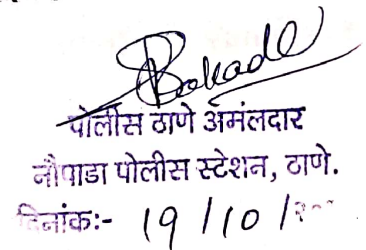 पोलीस ठाणे अमंलदार
नौपाडा पोलीस स्टेशन, ठाणे.
दिनांक:- 19/10/